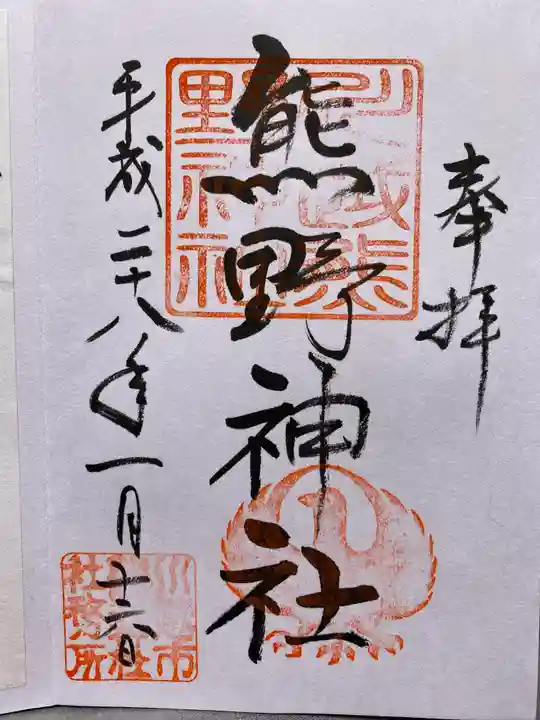 奉拝
熊野神社
平成二十八年一月十六日
川越熊
野神社
社務所